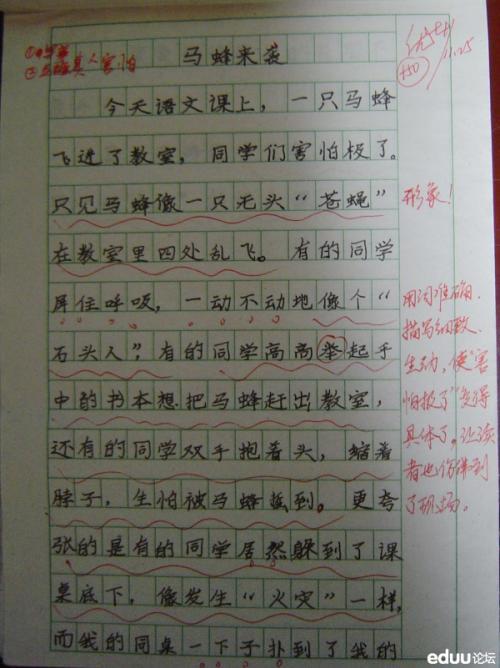 马蜂来袭
今天语文课上，一只马蜂
飞进了教室，同学们害怕极了。
只见马蜂像一只无头“苍蝇”
在教室里四处乱飞。有的同学
屏住呼吸，一动不动地像个“
石头人”；有的同学高高举起手
中的书本想把马蜂赶出教室，
还有的同学双手抱着头，缩着
脖子，生怕被马蜂蜇到。更夸
张的是有的同学居然躲到了课
桌底下，像发生“火灾”一样，
而我的同桌一下子扑到了我的
真人害怕
优+
+50
11.25
形象！
用词准确.
描写细致
生动，使“害
怕极了”变得
具体了。让读
者也仿佛到
了现场。
eduu论坛